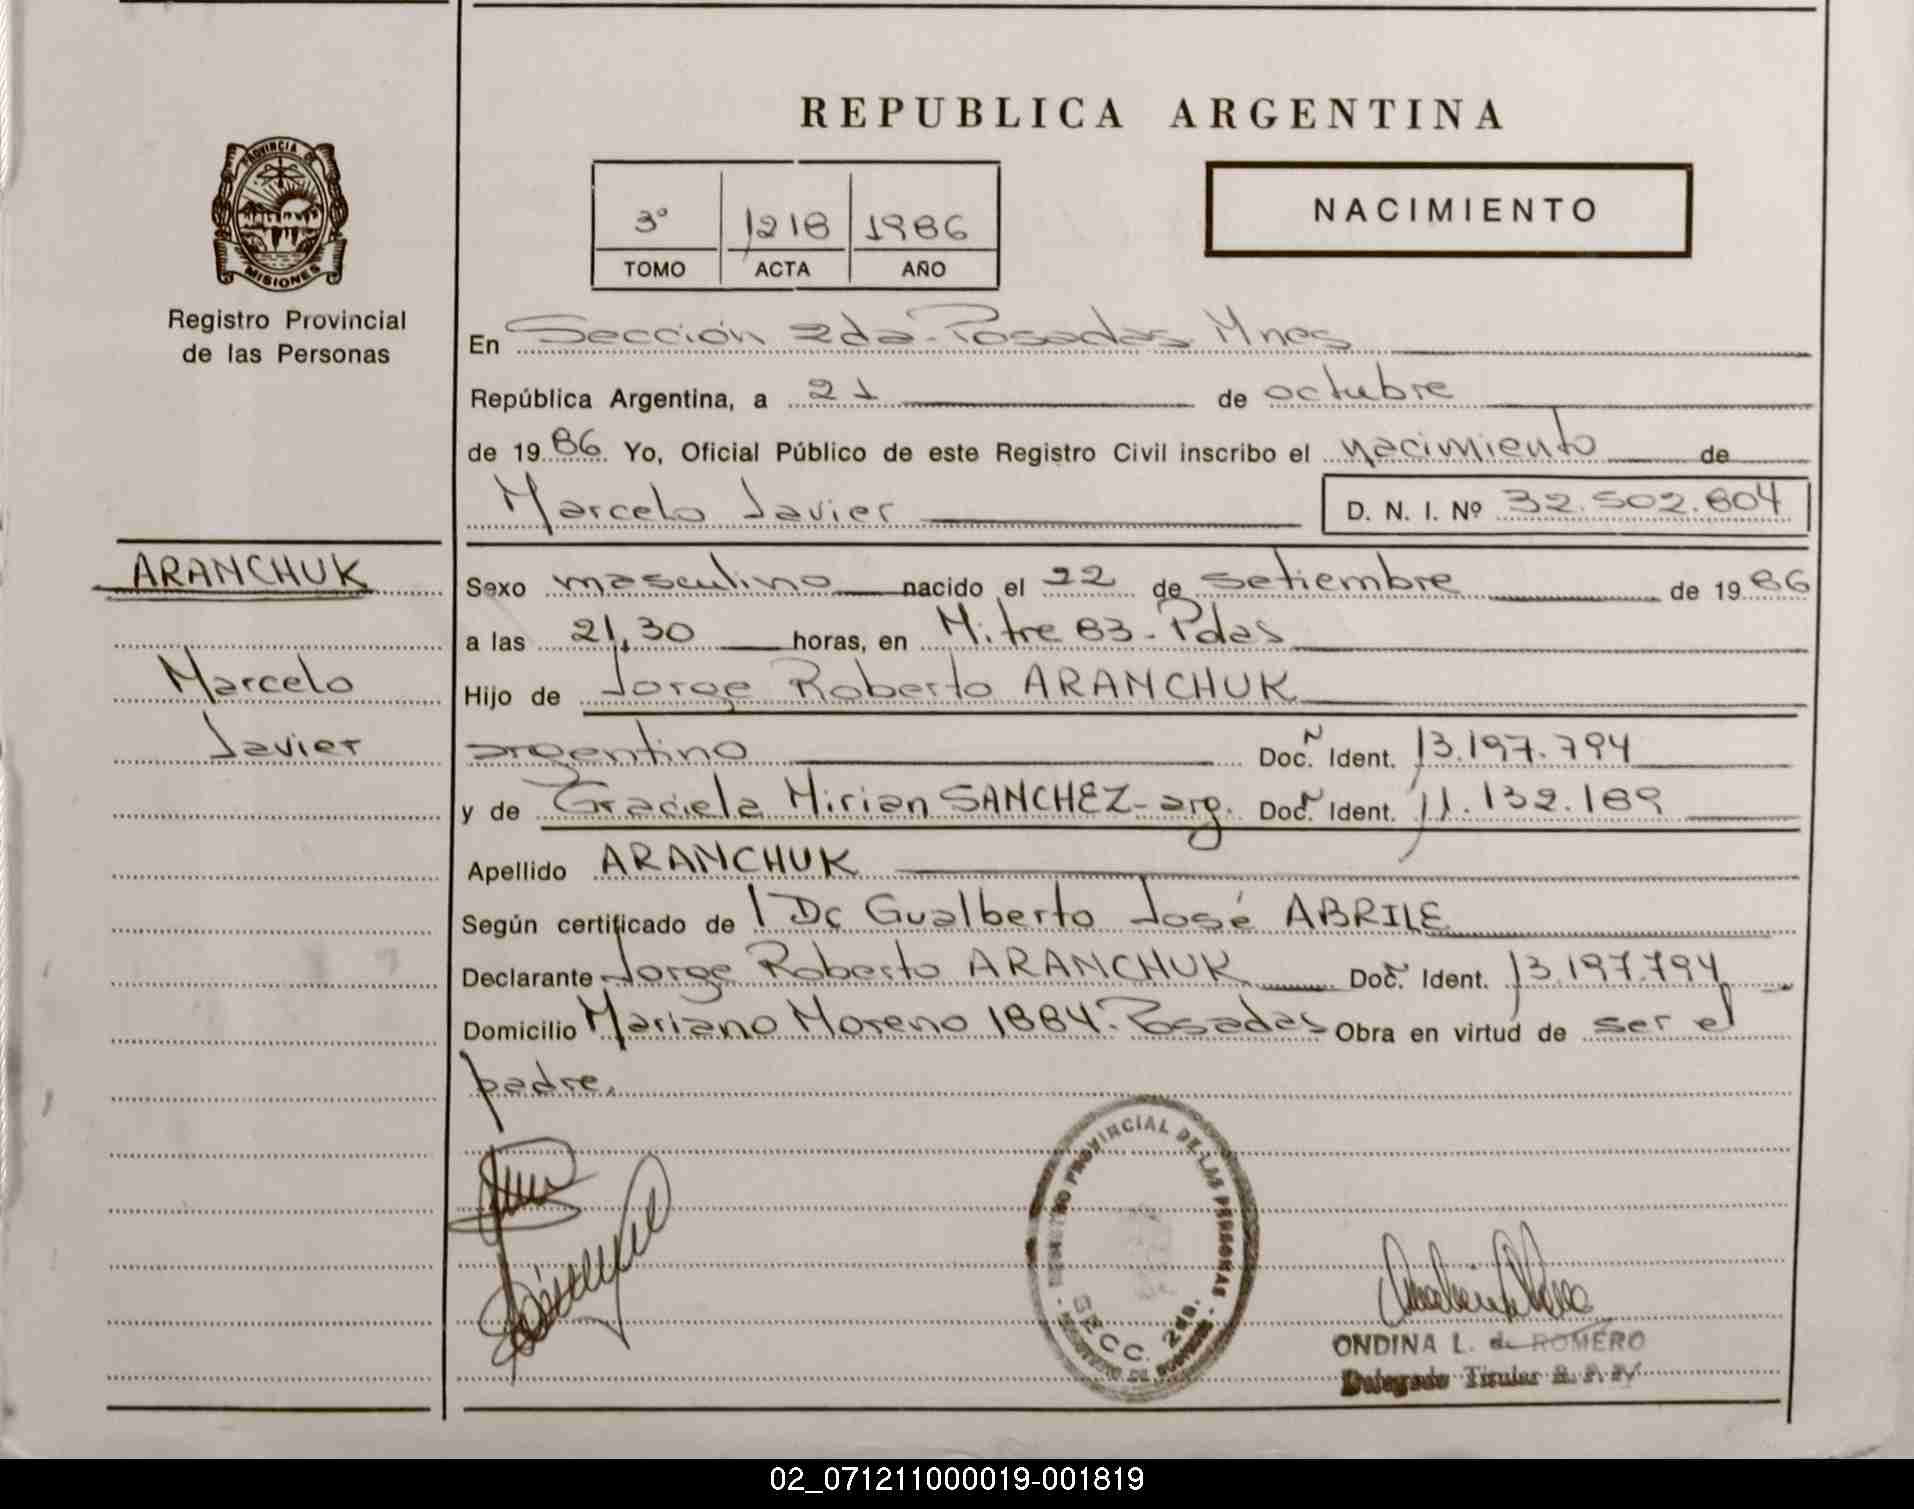 REPUBLICA ARGENTINA
PROVINCIA DE
MISIONES
Registro Provincial
de las Personas
3º 1218 1986
TOMO ACTA AÑO
NACIMIENTO
En Sección 2da. Posadas Mnes
República Argentina, a 21 de octubre
de 1986 Yo, Oficial Público de este Registro Civil inscribo el nacimiento de
Marcelo Javier D. N. I. Nº 32.502.804
ARANCHUK
Marcelo
Javier
Sexo masculino nacido el 22 de setiembre de 1986
a las 21,30 horas, en Mitre 83 - Pdas
Hijo de Jorge Roberto ARANCHUK
argentino Doc. N Ident. 13.197.794
y de Graciela Mirian SANCHEZ - arg. Doc. N Ident. 11.132.189
Apellido ARANCHUK
Según certificado de Gualberto José ABRILE
Declarante Jorge Roberto ARANCHUK Doc. N Ident. 13.197.794
Domicilio Mariano Moreno 1884. Posadas Obra en virtud de ser el
padre.
REGISTRO PROVINCIAL DE LAS PERSONAS
SECC. 2da.
ONDINA L. de ROMERO
Delegado Titular
02_071211000019-001819